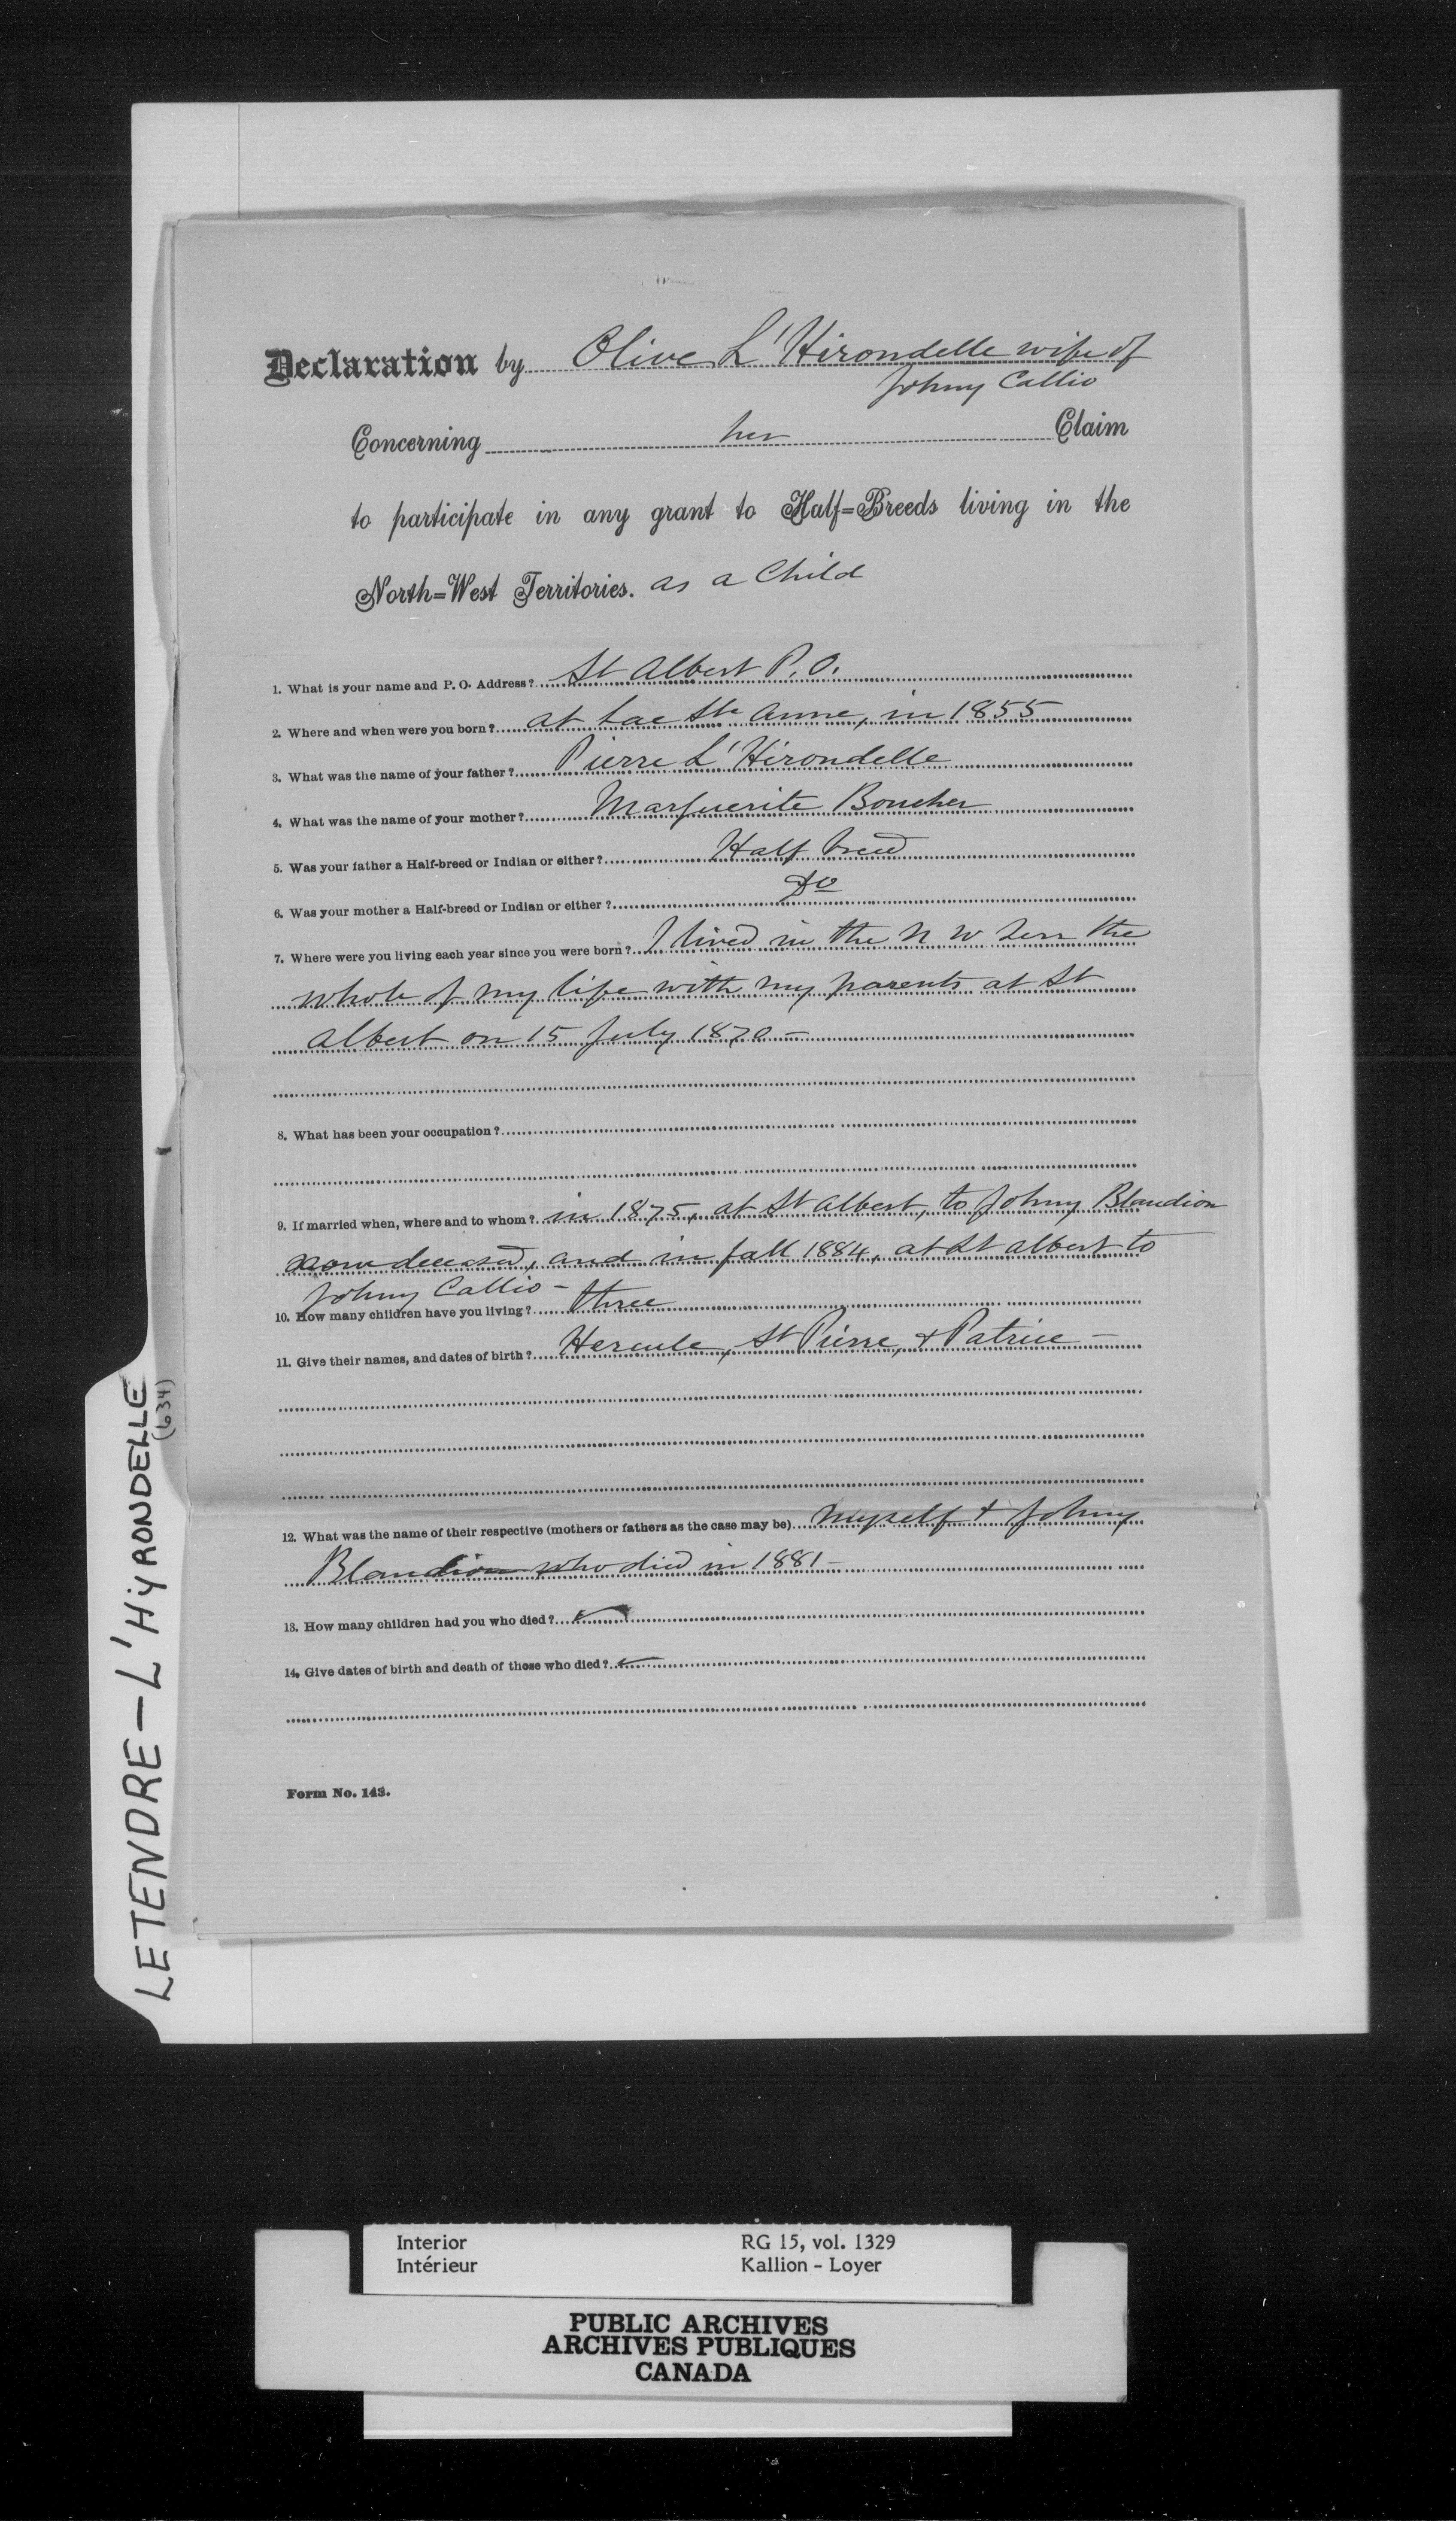 Declaration by Olive L'Hirondelle wife of
Johny Callio
Concerning her Claim
to participate in any grant to Half=Breeds living in the
North=West Territories. as a Child
1. What is your name and P. O. Address? St Albert P.O.
2. Where and when were you born? at Lac Ste Anne, in 1855
3. What was the name of your father? Pierre L'Hirondelle
4. What was the name of your mother? Marguerite Boucher
5. Was your father a Half-breed or Indian or either? Half breed
6. Was your mother a Half-breed or Indian or either? Do
7. Where were you living each year since you were born? I lived in the N W Terr the
whole of my life with my parents at St
Albert on 15 July 1870 –
8. What has been your occupation?
9. If married when, where and to whom? in 1875, at St Albert, to Johny Blandion
now deceased, and in fall 1884, at St Albert to
Johny Callio –
10. How many children have you living? three
11. Give their names, and dates of birth? Hercule, St Pierre, & Patrice –
12. What was the name of their respective (mothers or fathers as the case may be) Myself & Johny
Blandion who died in 1881 –
13. How many children had you who died?
14. Give dates of birth and death of those who died?
Form No. 143.
LETENDRE – L'HYRONDELLE
(634)
Interior RG 15, vol. 1329
Intérieur Kallion - Loyer
PUBLIC ARCHIVES
ARCHIVES PUBLIQUES
CANADA